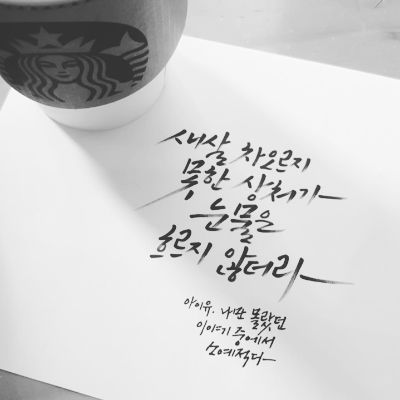 새살 차오르지
못한 상처가
눈물은
흐르지 않더라
아이유. 나만 몰랐던
이야기 중에서
소예적다